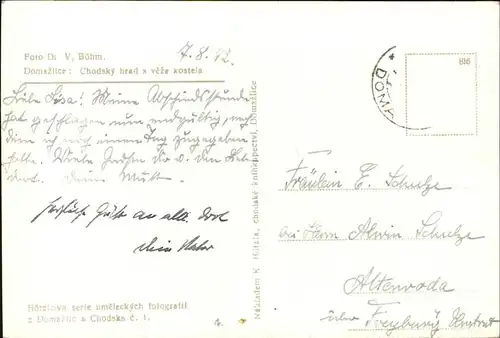 Foto Dr V. Böhm.
Domažlice: Chodský hrad s věže kostela
7.8.42
Liebe Lisa! Meine Abschiedsstunde
hat geschlagen nun endgültig, nach
dem ich noch einen Tag zugegeben
hatte.
Deine Mutt.
herzliche Grüße an alle dort
dein Vater
Hůtzlova serie uměleckých fotografií
z Domažlic a Chodska č. 1.
Nakladem K. Hůtzla, chodské knihkupectví, Domažlice
DOMA
816
Fräulein E. Schulze
bei Herrn Alwin Schulze
Altenroda
über Freyburg Unstrut